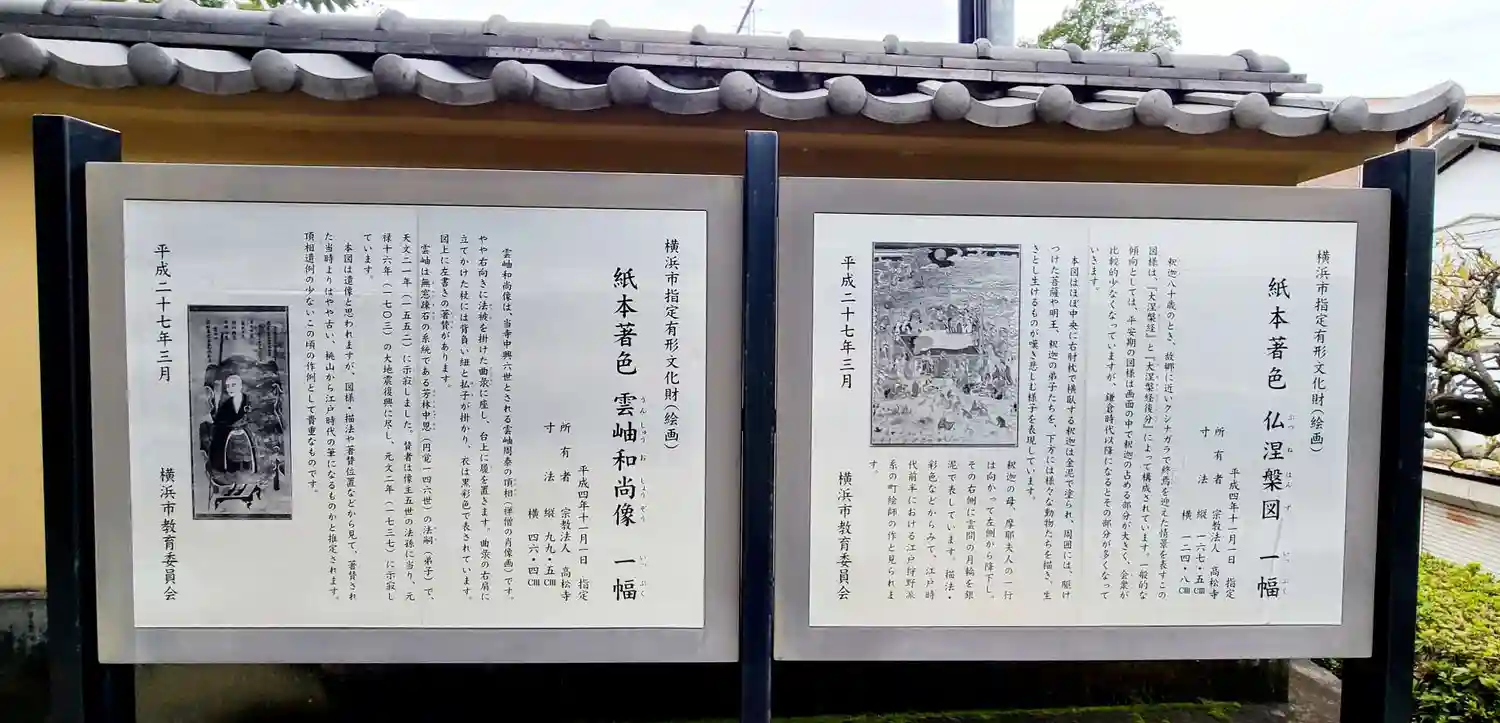 横浜市指定有形文化財(絵画)
紙本著色 仏涅槃図 一幅
ぶつ ね はん ず いっ ぷく
平成四年十一月一日 指定
所有者 宗教法人 高松寺
寸法 縦 一六七・五㎝
横 一二四・八㎝
釈迦八十歳のとき、故郷に近いクシナガラで終焉を迎えた情景を表すこの
図様は、『大涅槃経』と『大涅槃経後分』によって構成されています。一般的な
傾向としては、平安期の図様は画面の中で釈迦の占める部分が大きく、会衆が
比較的少なくなっていますが、鎌倉時代以降になるとその部分が多くなって
いきます。
本図はほぼ中央に右肘枕で横臥する釈迦は金泥で塗られ、周囲には、駆け
つけた菩薩や明王、釈迦の弟子たちを、下方には様々な動物たちを描き、生
きとし生けるものが嘆き悲しむ様子を表現しています。
釈迦の母、摩耶夫人の一行
は向かって左側から降下し。
その右側に雲間の月輪を銀
泥で表しています。描法・
彩色などからみて、江戸時
代前半における江戸狩野派
系の町絵師の作と見られま
す。
平成二十七年三月
横浜市教育委員会
横浜市指定有形文化財(絵画)
紙本著色 雲岫和尚像 一幅
うんしゅう お しょう ぞう いっ ぷく
平成四年十一月一日 指定
所有者 宗教法人 高松寺
寸法 縦 九九・五㎝
横 四六・四㎝
雲岫和尚像は、当寺中興六世とされる雲岫周泰の頂相(禅僧の肖像画)です。
やや右向きに法被を掛けた曲彔に座し、台上に履を置きます。曲彔の右肩に
立てかけた杖には背負い紐と払子が掛かり、衣は黒彩色で表されています。
図上に左書きの著賛があります。
雲岫は無窓疎石の系統である芳林中恩(円覚一四六世)の法嗣(弟子)で、
天文二一年(一五五二)に示寂しました。賛者は像主五世の法孫に当り、元
禄十六年(一七〇三)の大地震復興に尽し、元文二年(一七三七)に示寂し
ています。
本図は遺像と思われますが、図様・描法や著賛位置などから見て、著賛され
た当時よりはやや古い、桃山から江戸時代の筆になるものかと推定されます。
頂相遺例の少ないこの頃の作例として貴重なものです。
平成二十七年三月
横浜市教育委員会